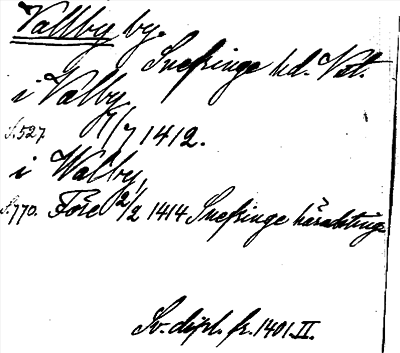 Vallby by.
Snefringe hd. Vstl.
i Valby
S. 527 7/7 1412.
i Walby,
S. 770. Före 2/2 1414 Snefringe häradsting
Sv. dipl. fr. 1401. II.